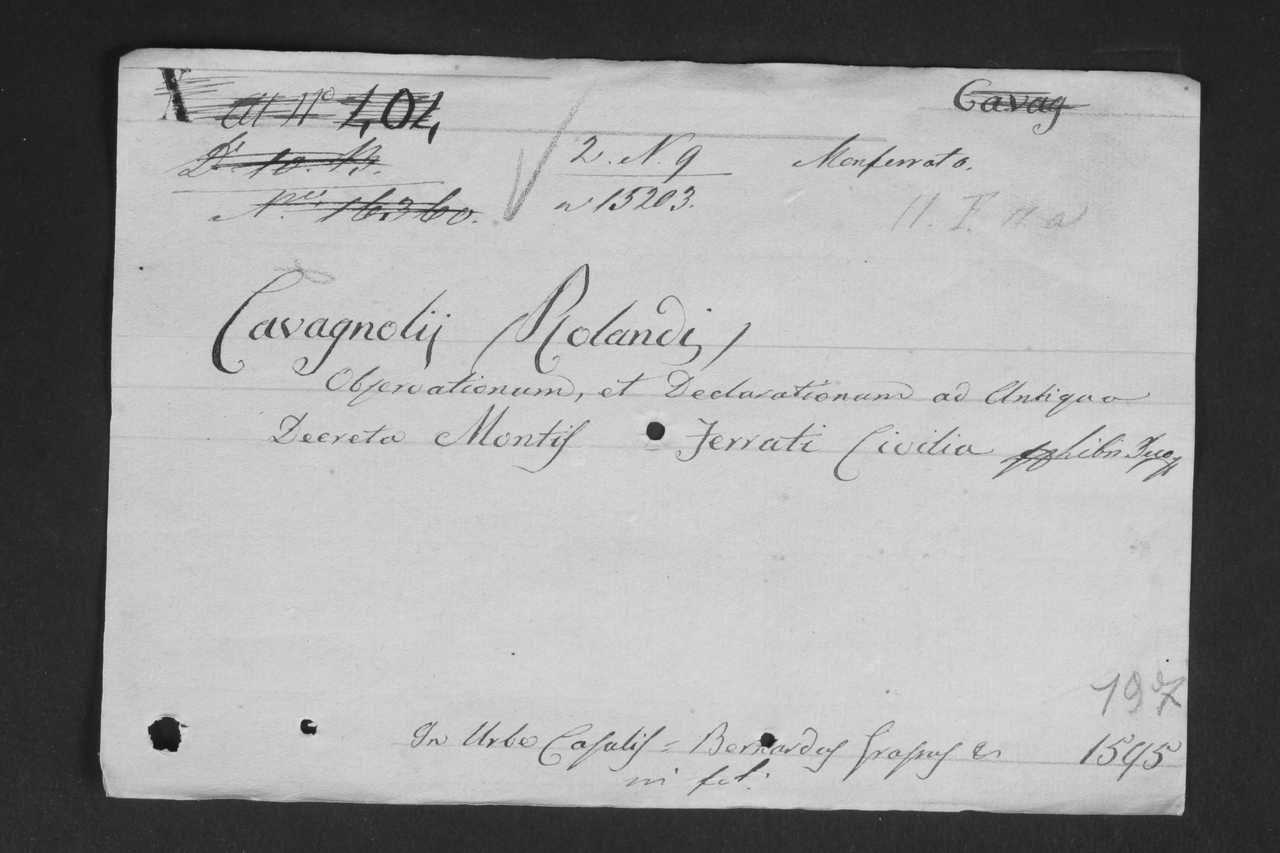 X
Cavag
at Nº 1,01,
Dt 10. B.
2. N. 9
Monferrato.
Nº 16360.
nº 15203.
11. F. 11 a
Cavagnolij Rolandi,
Observationum, et Declarationum ad Antiqua
Decreta Montis Ferrati Civilia Libri
197
In Urbe Casalis = Bernardus Grassus &
1595
in fol: